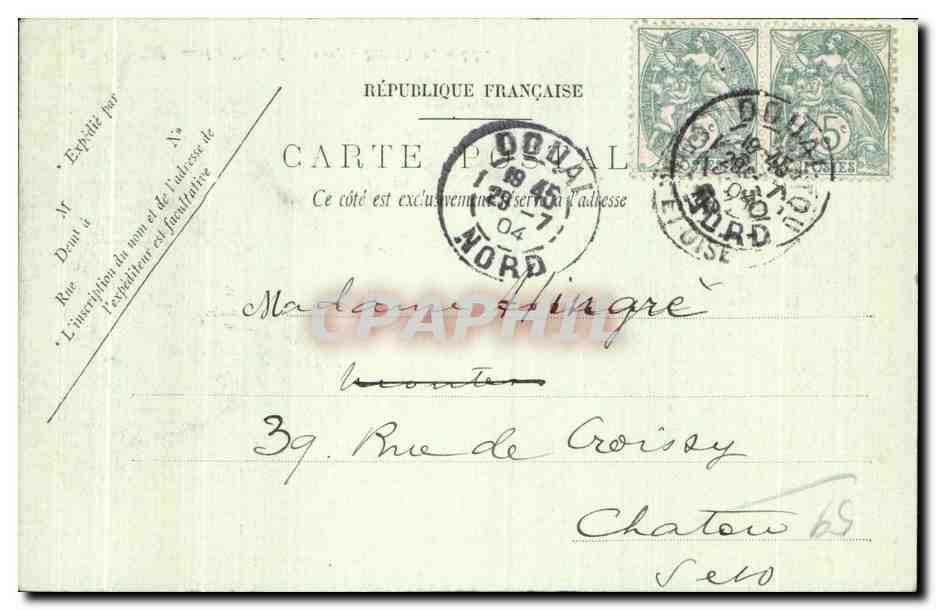 RÉPUBLIQUE FRANÇAISE
CARTE POSTALE
Ce côté est exclusivement réservé à l'adresse
• Expédié par
M
Demt à
Rue
No
• L'inscription du nom et de l'adresse de
l'expéditeur est facultative
DOUAI
19 45
29 - 7
04
NORD
DOUAI
19 45
NORD
CHATOU
ET OISE
5c
POSTES
Madame Mingré
39 Rue de Croissy
Chatou
S et O
65
CPAPHIL